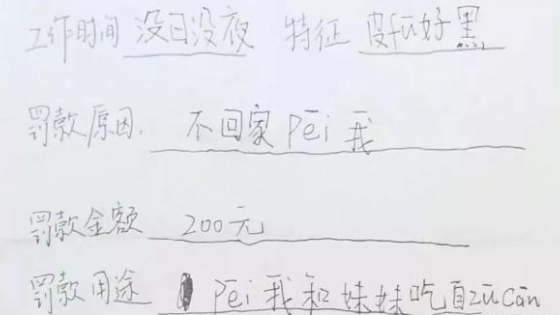 工作时间 没日没夜 特征 皮fū好黑
罚款原因. 不回家 Pēi 我
罚款金额 200元
罚款用途 Pēi 我和妹妹吃自zù cān